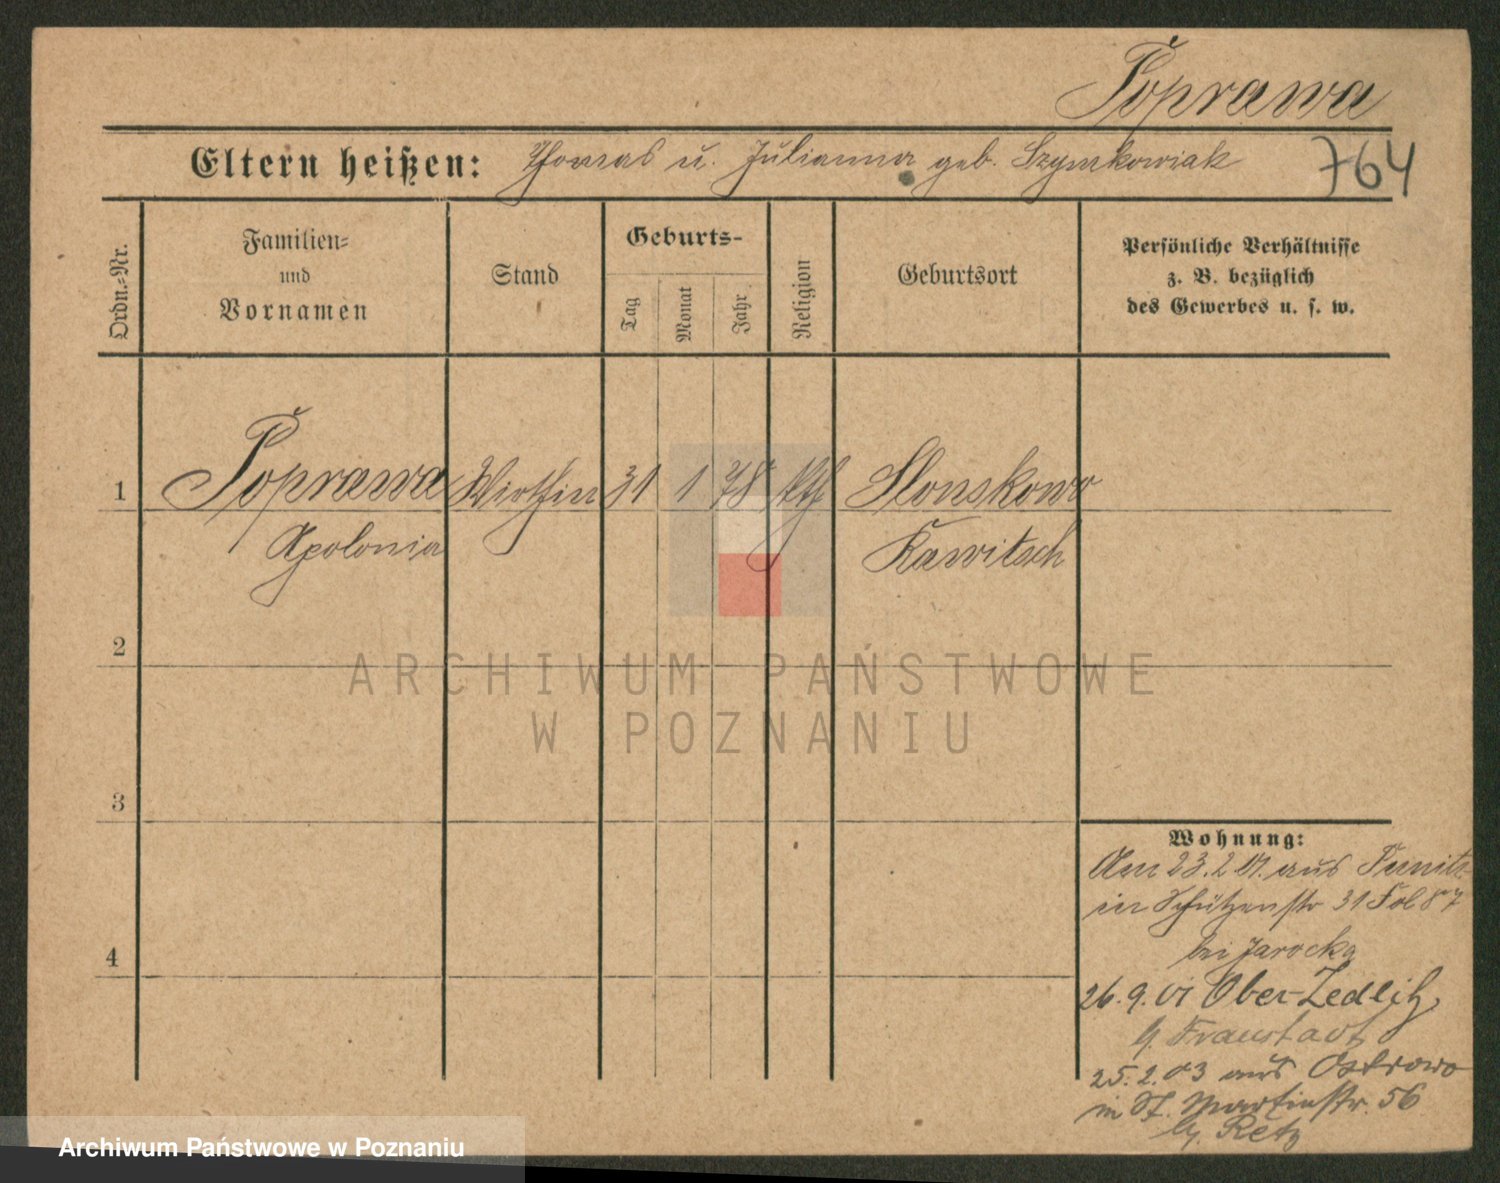 Poprawa
Eltern heißen: Thomas u. Julianna geb. Szymkowiak 764
Ordn.-Nr.
Familien- und Vornamen
Stand
Geburts-
Tag
Monat
Jahr
Religion
Geburtsort
Persönliche Verhältnisse
z. B. bezüglich
des Gewerbes u. s. w.
1 Poprawa Wirthin 31 1 78 kth Slonskowo
Apolonia Rawitsch
2
3
4
Wohnung:
Am 23.2.01. aus Punitz
in Schützenstr 31 Fol 87
bei Jarocka
26.9.01 Ober-Zedlitz
b. Fraustadt
25.2.03 aus Ostrowo
in St. Martinstr. 56
b. Retz
ARCHIWUM PAŃSTWOWE
W POZNANIU
Archiwum Państwowe w Poznaniu